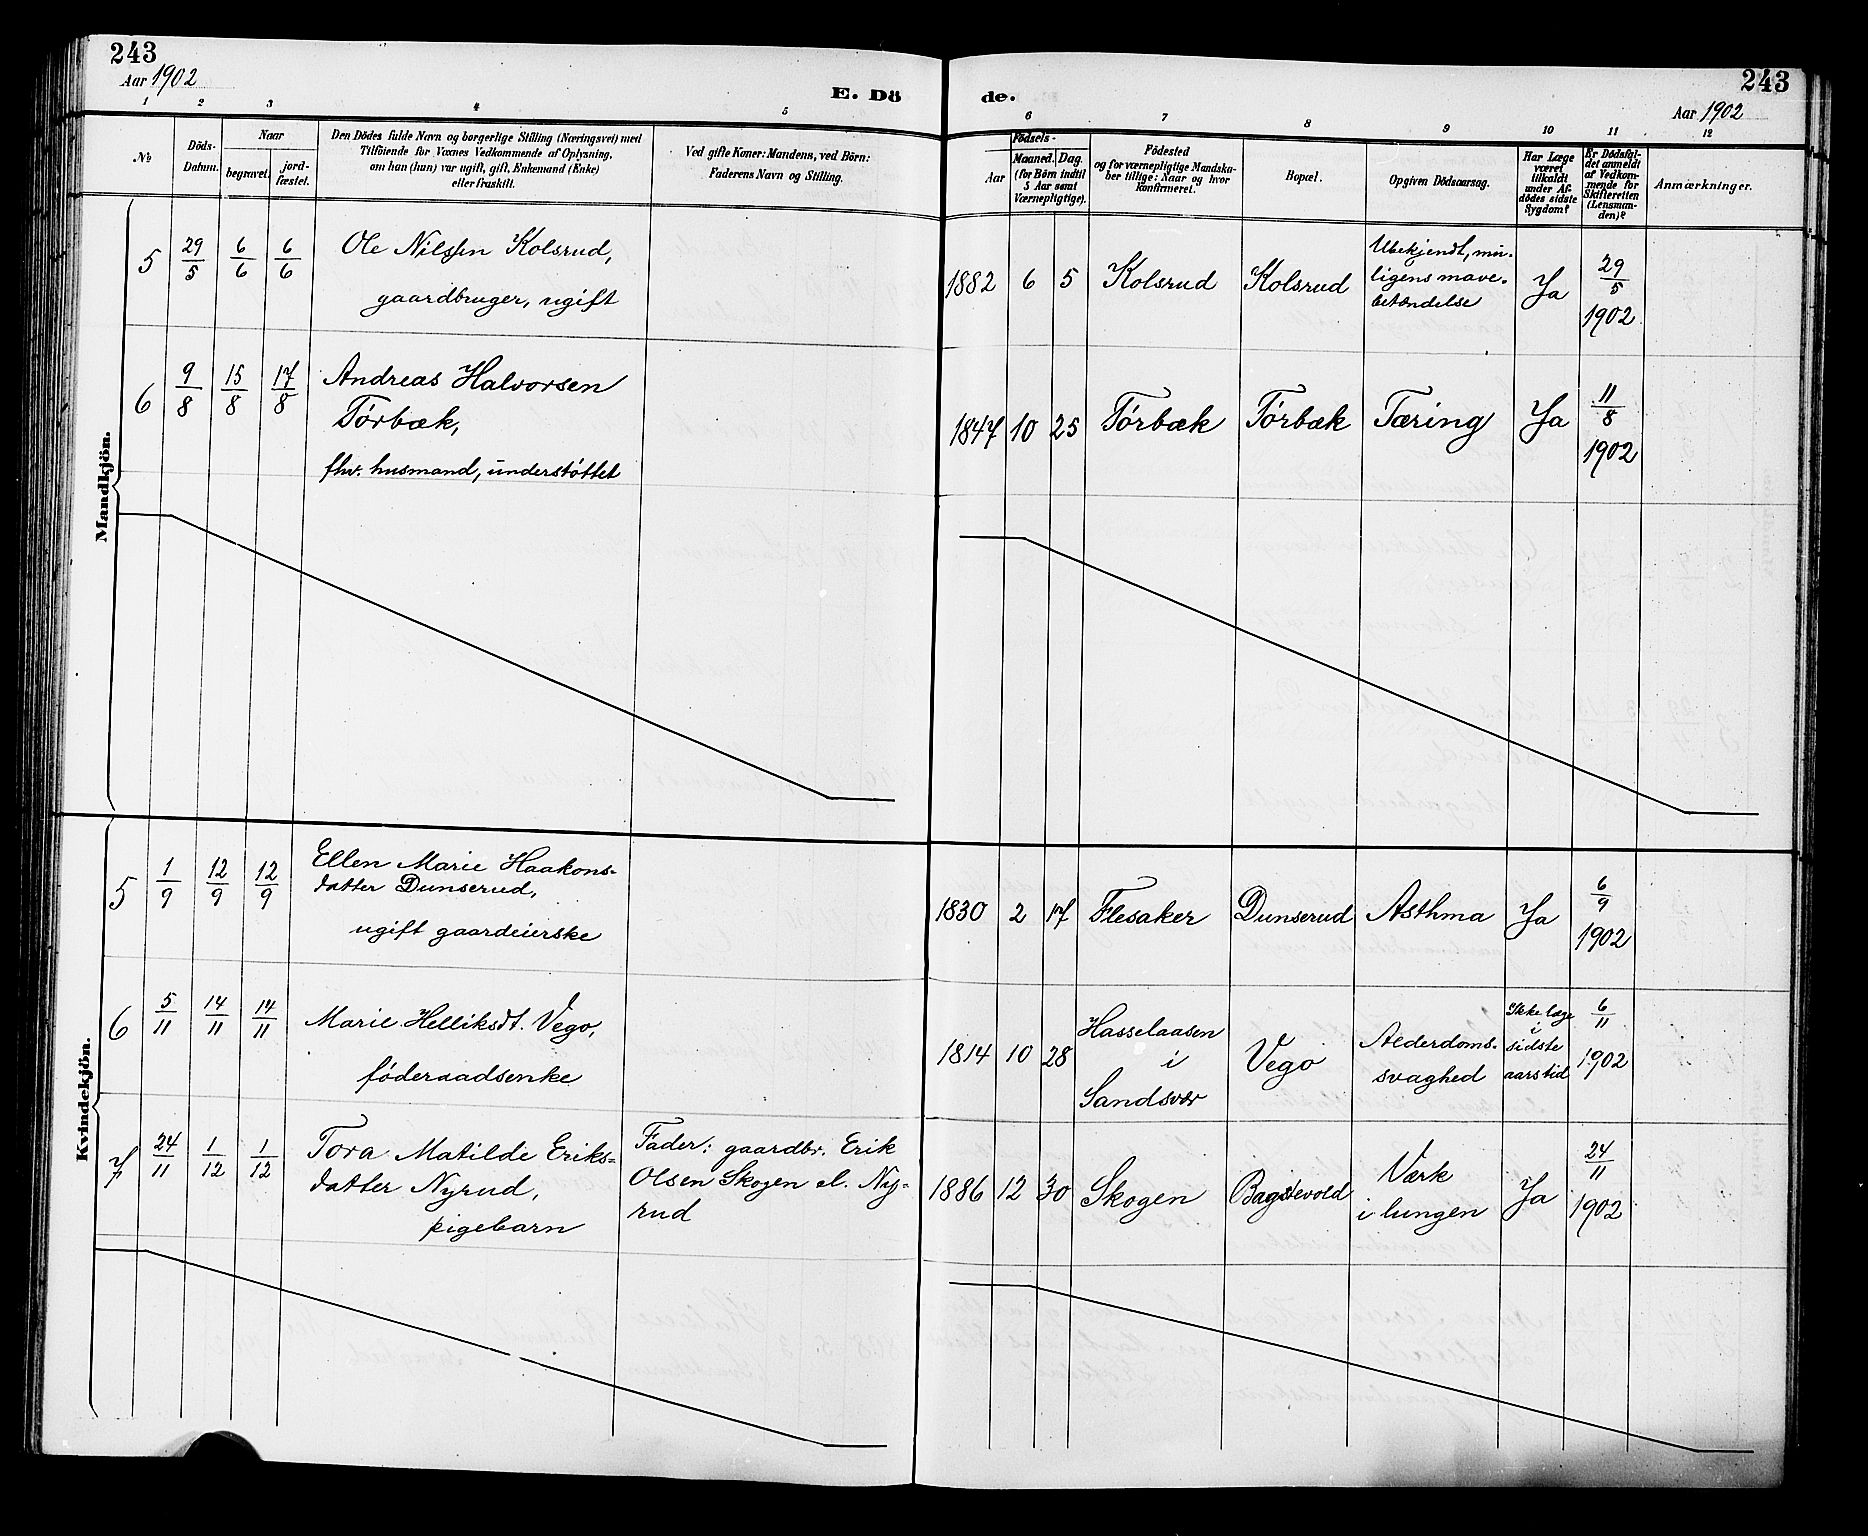 243
Aar 1902
E. Dö
de.
243
Aar 1902
1 2 3 4 5 6 7 8 9 10 11 12
№
Döds-
Datum.
Naar
begravet.
jord-
fæstet.
Den Dödes fulde Navn og borgerlige Stilling (Næringsvei) med
Tilföiende for Voxnes Vedkommende af Oplysning,
om han (hun) var ugift, gift, Enkemand (Enke)
eller fraskilt.
Ved gifte Koner: Mandens, ved Börn:
Faderens Navn og Stilling.
Födsels-
Aar
Maaned. Dag.
(for Börn indtil
5 Aar samt
Værnepligtige).
Födested
og for værnepligtige Mandska-
ber tillige: Naar og hvor
konfirmeret.
Bopæl.
Opgiven Dödsaarsag.
Har Læge
været
tilkaldt
under Af-
dödes sidste
Sygdom?
Er Dödsfal-
det anmeldt
af Vedkom-
mende for
Skifteretten
(Lensman-
den)?
Anmærkninger.
Mandkjön.
5 29/5 6/6 6/6
Ole Nilssen Kolsrud,
gaardbruger, ugift
1882 6 5 Kolsrud Kolsrud
Ubekjendt, mu-
ligens mave-
betændelse
Ja
29/5
1902
6 9/8 15/8 17/8
Andreas Halvorsen
Tórbæk,
fhv. husmand, understóttet
1847 10 25 Tórbæk Tórbæk Tæring Ja
11/8
1902
Kvindekjön.
5 1/9 12/9 12/9
Ellen Marie Haakons-
datter Dunserud,
ugift gaardeierske
1830 2 17 Flesaker Dunserud Asthma Ja
6/9
1902
6 5/11 14/11 14/11
Marie Helliksdt. Vego,
fóderaadsenke
1814 10 28
Hasselaasen
i
Sandsvær
Vego
Alderdoms-
svaghed
Ikke læge
i
sidste
aarstid
6/11
1902
7 24/11 1/12 1/12
Tora Matilde Eriks-
datter Nyrud,
pigebarn
Fader: gaardbr. Erik
Olsen Skogen el. Ny-
rud
1886 12 30 Skogen
Værk
i lungen
Ja
24/11
1902